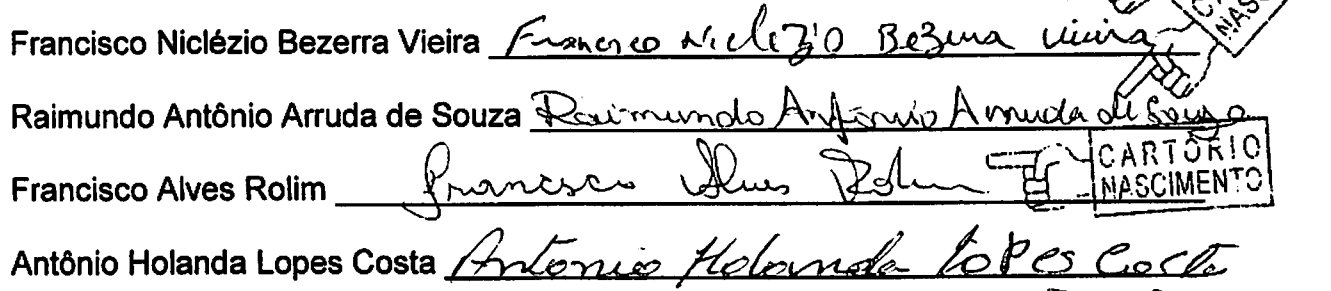 Francisco Niclézio Bezerra Vieira Francisco Niclézio Bezerra Vieira
Raimundo Antônio Arruda de Souza Raimundo Antônio Arruda de Souza
CARTÓRIO
Francisco Alves Rolim Francisco Alves Rolim
NASCIMENTO
Antônio Holanda Lopes Costa Antonio Holanda Lopes Costa